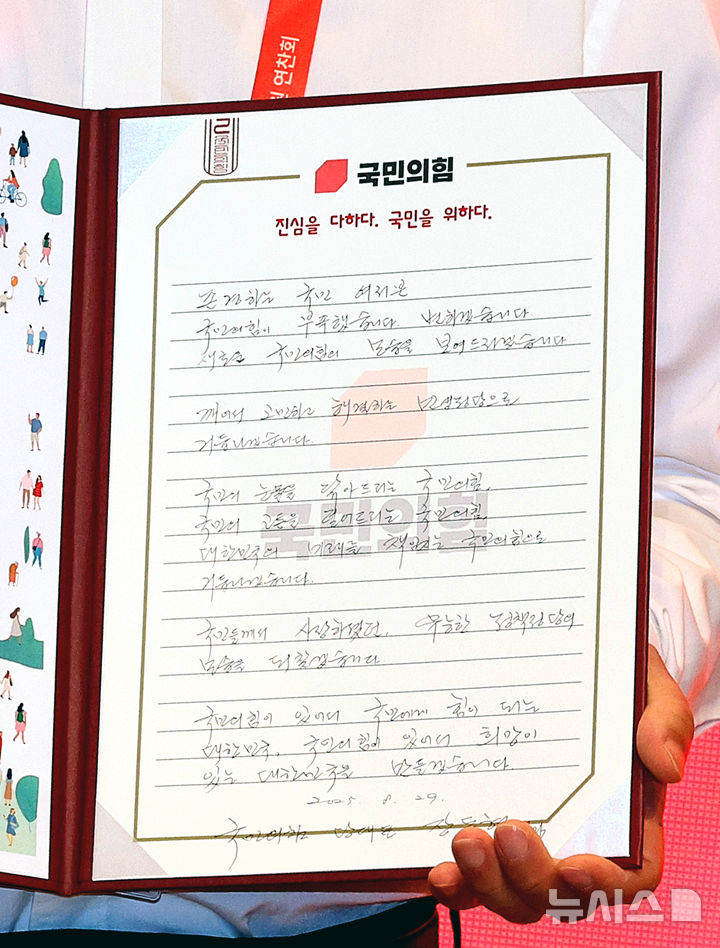 연찬회
국민의힘
진심을 다하다. 국민을 위하다.
존경하는 국민 여러분
국민의힘이 부족했습니다. 변하겠습니다
새로운 국민의힘의 모습을 보여드리겠습니다
깨어서 고민하고 해결하는 민생정당으로
거듭나겠습니다.
국민의 눈물을 닦아드리는 국민의힘,
국민의 고통을 덜어드리는 국민의힘
대한민국의 미래를 책임지는 국민의힘으로
거듭나겠습니다.
국민들께서 사랑하셨던, 유능한 정책정당의
모습을 되찾겠습니다.
국민의힘이 있어서 국민에게 힘이 되는
대한민국, 국민의힘이 있어서 희망이
있는 대한민국을 만들겠습니다
2025. 8. 29.
국민의힘 당대표 장동혁
국민의힘
뉴시스